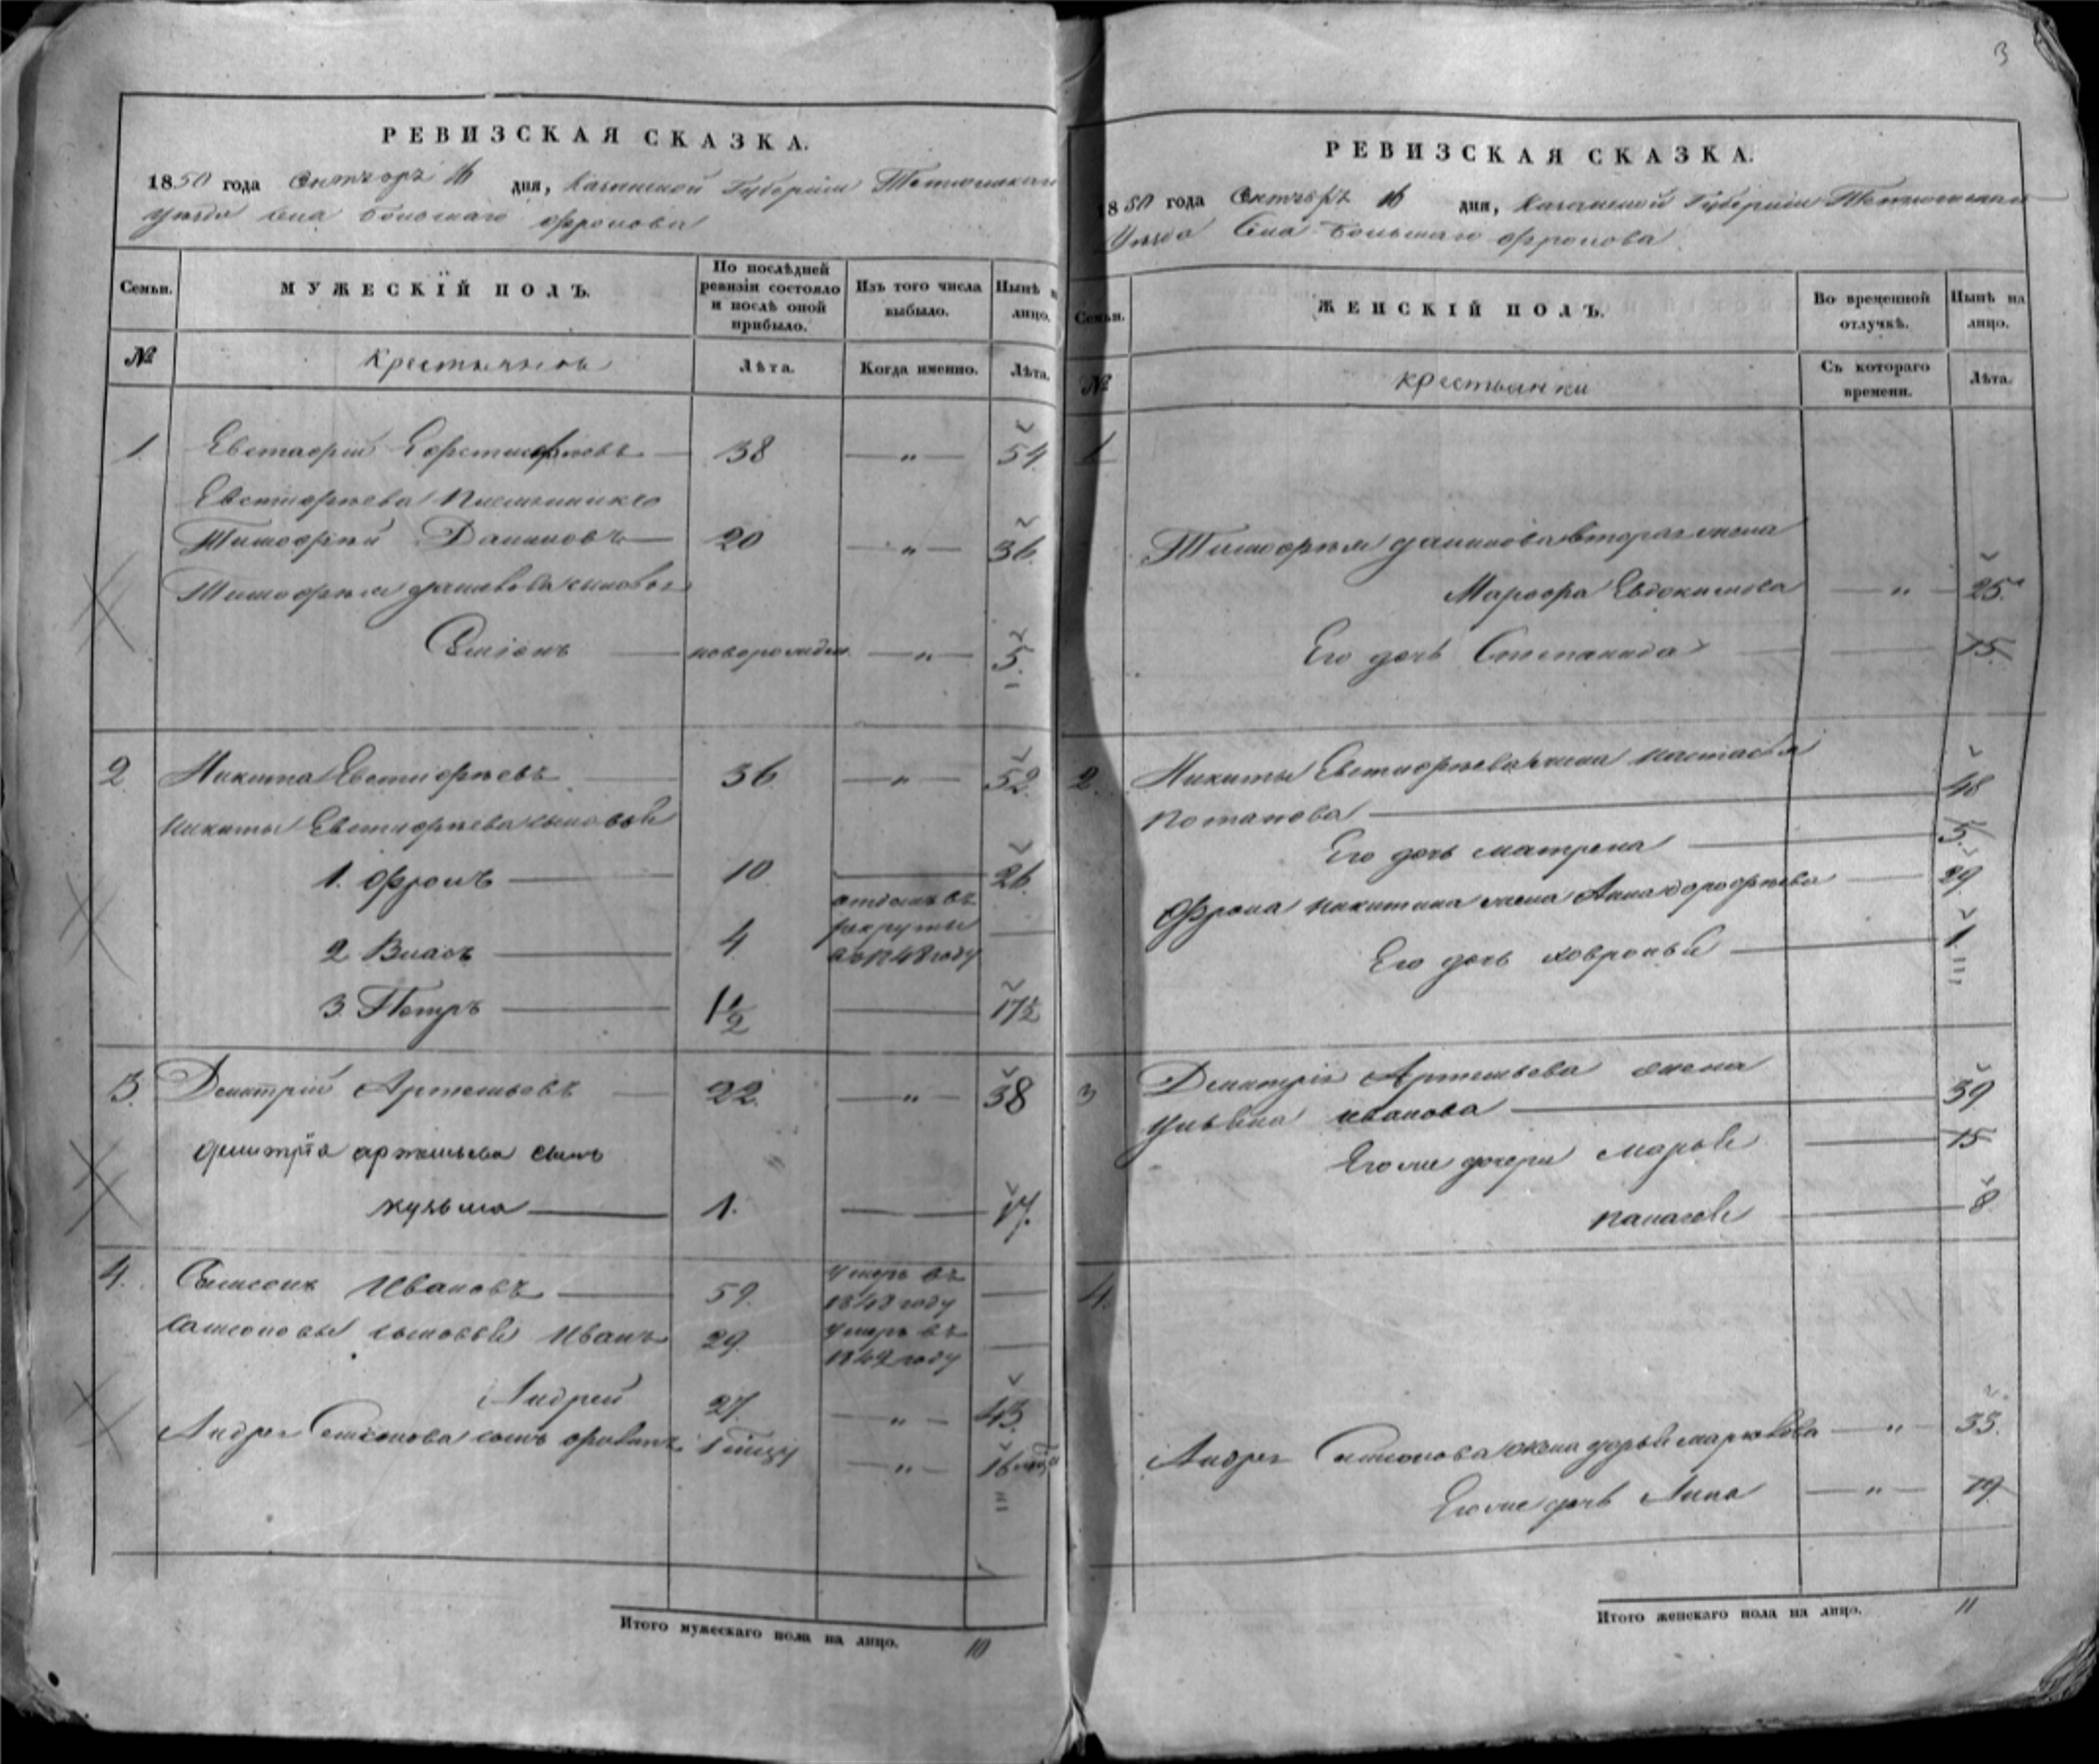 3
РЕВИЗСКАЯ СКАЗКА.
1850 года Октября 16 дня, Казанской Губернии Тетюшскаго
Уѣзда Села Большаго Фролова
Семьи.
МУЖЕСКІЙ ПОЛЪ.
По послѣдней ревизіи состояло и послѣ оной прибыло.
Изъ того числа выбыло.
Нынѣ на лицо.
№
Крестьяновъ
Лѣта.
Когда именно.
Лѣта.
1. Евстафій 38 — „ — 54
Евстифѣева племянникъ
Тимофѣй Даниловъ — 20 — „ — 36.
Тимофѣя Данилова сыновья
Семіонъ — новорожден. — „ — 5.
2. Никита Евстифѣевъ — 36 — „ — 52.
Никиты Евстифѣева сыновья
1. Фролъ — 10. — 26.
2 Власъ — 4. отданъ въ рекруты въ 1848 году —
3. Петръ — 1 1/2 — 17 1/2
3. Дмитрій Артемьевъ — 22. — „ — 38
Дмитрія Артемьева сынъ
Кузьма — 1. — 17.
4. Самсонъ Ивановъ — 59. умеръ въ 1848 году —
Самсоновы сыновья Иванъ 29. умеръ въ 1849 году —
Андрей 27. — „ — 43.
Андрея Самсонова сынъ — „ — 16
Итого мужескаго пола на лицо. 10
РЕВИЗСКАЯ СКАЗКА.
1850 года Октября 16 дня, Казанской Губерніи Тетюшскаго
Уѣзда Села Большаго Фролова
Семьи.
ЖЕНСКІЙ ПОЛЪ.
Во временной отлучкѣ.
Нынѣ на лицо.
№
Крестьянки
Съ котораго времени.
Лѣта.
1
Тимофѣя Данилова вторая жена
Марфа Евдокимова — „ — 25.
Его дочь Степанида — 15.
2. Никиты Евстифѣева жена Настасья
Потапова — 48
Его дочь Матрена — 5.
Фрола Никитина жена Анна Дорофѣева — 29.
Его дочь Ховронья — 1.
3 Дмитрія Артемьева жена
Ульяна Иванова — 39
Его же дочери Марья — 15
Палагея — 8
4.
Андрея Самсонова жена Дарья — „ — 33.
Его же дочь Анна — „ — 19.
Итого женскаго пола на лицо. 11